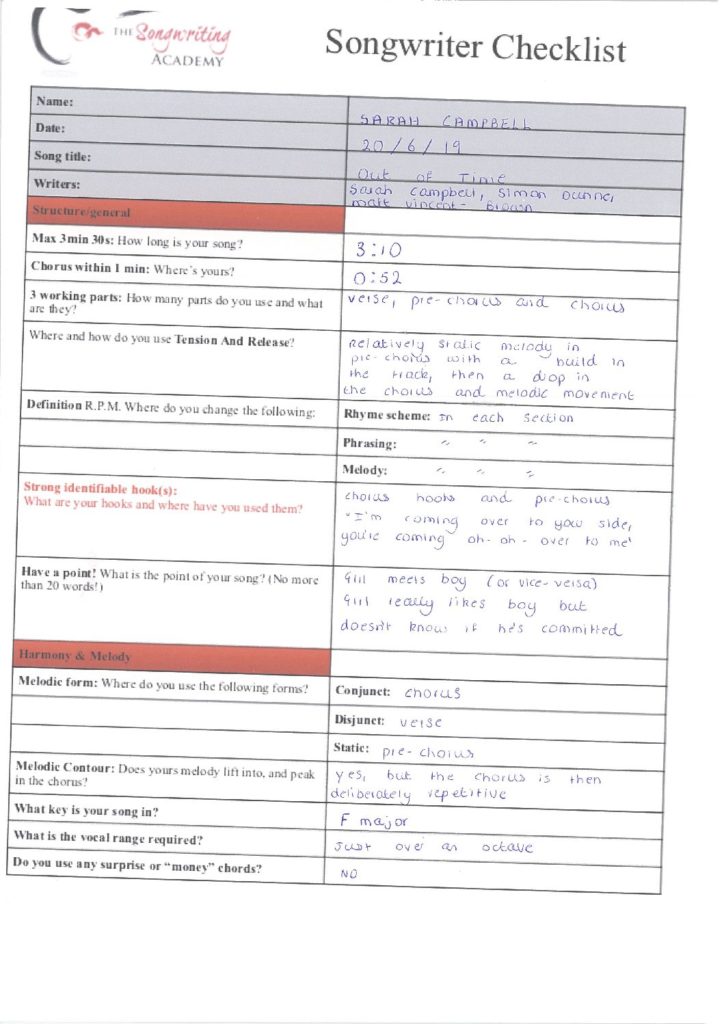 THE Songwriting
ACADEMY
Songwriter Checklist
Name: SARAH CAMPBELL
Date: 20/6/19
Song title: Out of Time
Writers: Sarah Campbell, Simon Dunne,
matt vincent-Brown
Structure/general
Max 3min 30s: How long is your song? 3:10
Chorus within 1 min: Where's yours? 0:52
3 working parts: How many parts do you use and what
are they?
verse, pre-chorus and chorus
Where and how do you use Tension And Release?
relatively static melody in
pre-chorus with a build in
the track, then a drop in
the chorus and melodic movement
Definition R.P.M. Where do you change the following:
Rhyme scheme: In each section
Phrasing: " " "
Melody: " " "
Strong identifiable hook(s):
What are your hooks and where have you used them?
chorus hooks and pre-chorus
"I'm coming over to your side,
you're coming oh-oh-over to me"
Have a point! What is the point of your song? (No more
than 20 words!)
Girl meets boy (or vice-versa)
Girl really likes boy but
doesn't know if he's committed
Harmony & Melody
Melodic form: Where do you use the following forms?
Conjunct: chorus
Disjunct: verse
Static: pre-chorus
Melodic Contour: Does yours melody lift into, and peak
in the chorus?
yes, but the chorus is then
deliberately repetitive
What key is your song in? F major
What is the vocal range required? Just over an octave
Do you use any surprise or "money" chords? NO